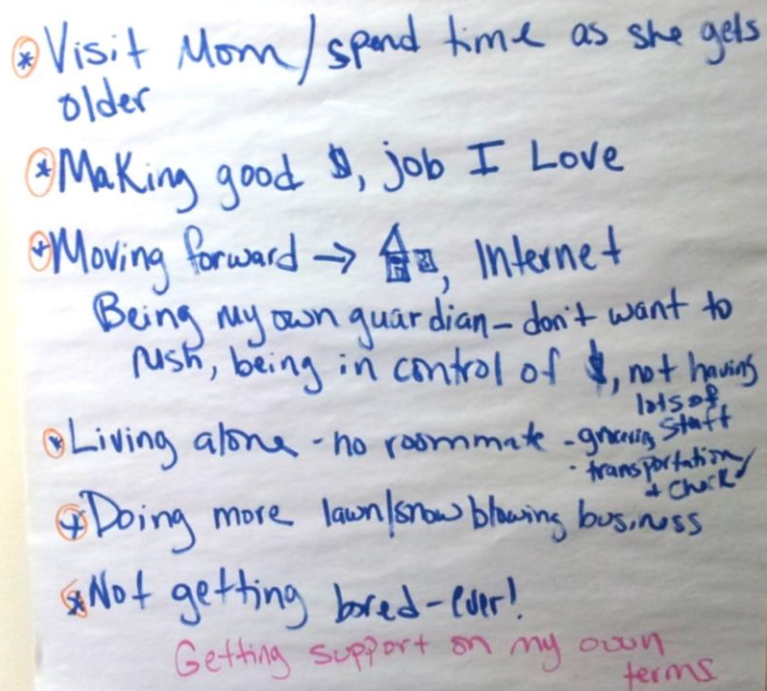 * Visit Mom/spend time as she gets
older
* Making good $, job I Love
* Moving forward → , Internet
Being my own guardian - don't want to
rush, being in control of $, not having
lots of
staff
* Living alone - no roommate - grocery
- transportation
+ check
* Doing more lawn/snow blowing business
* Not getting bored - ever!
Getting support on my own
terms